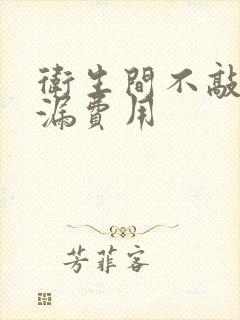 衛生間不敲
漏費用
芳菲客